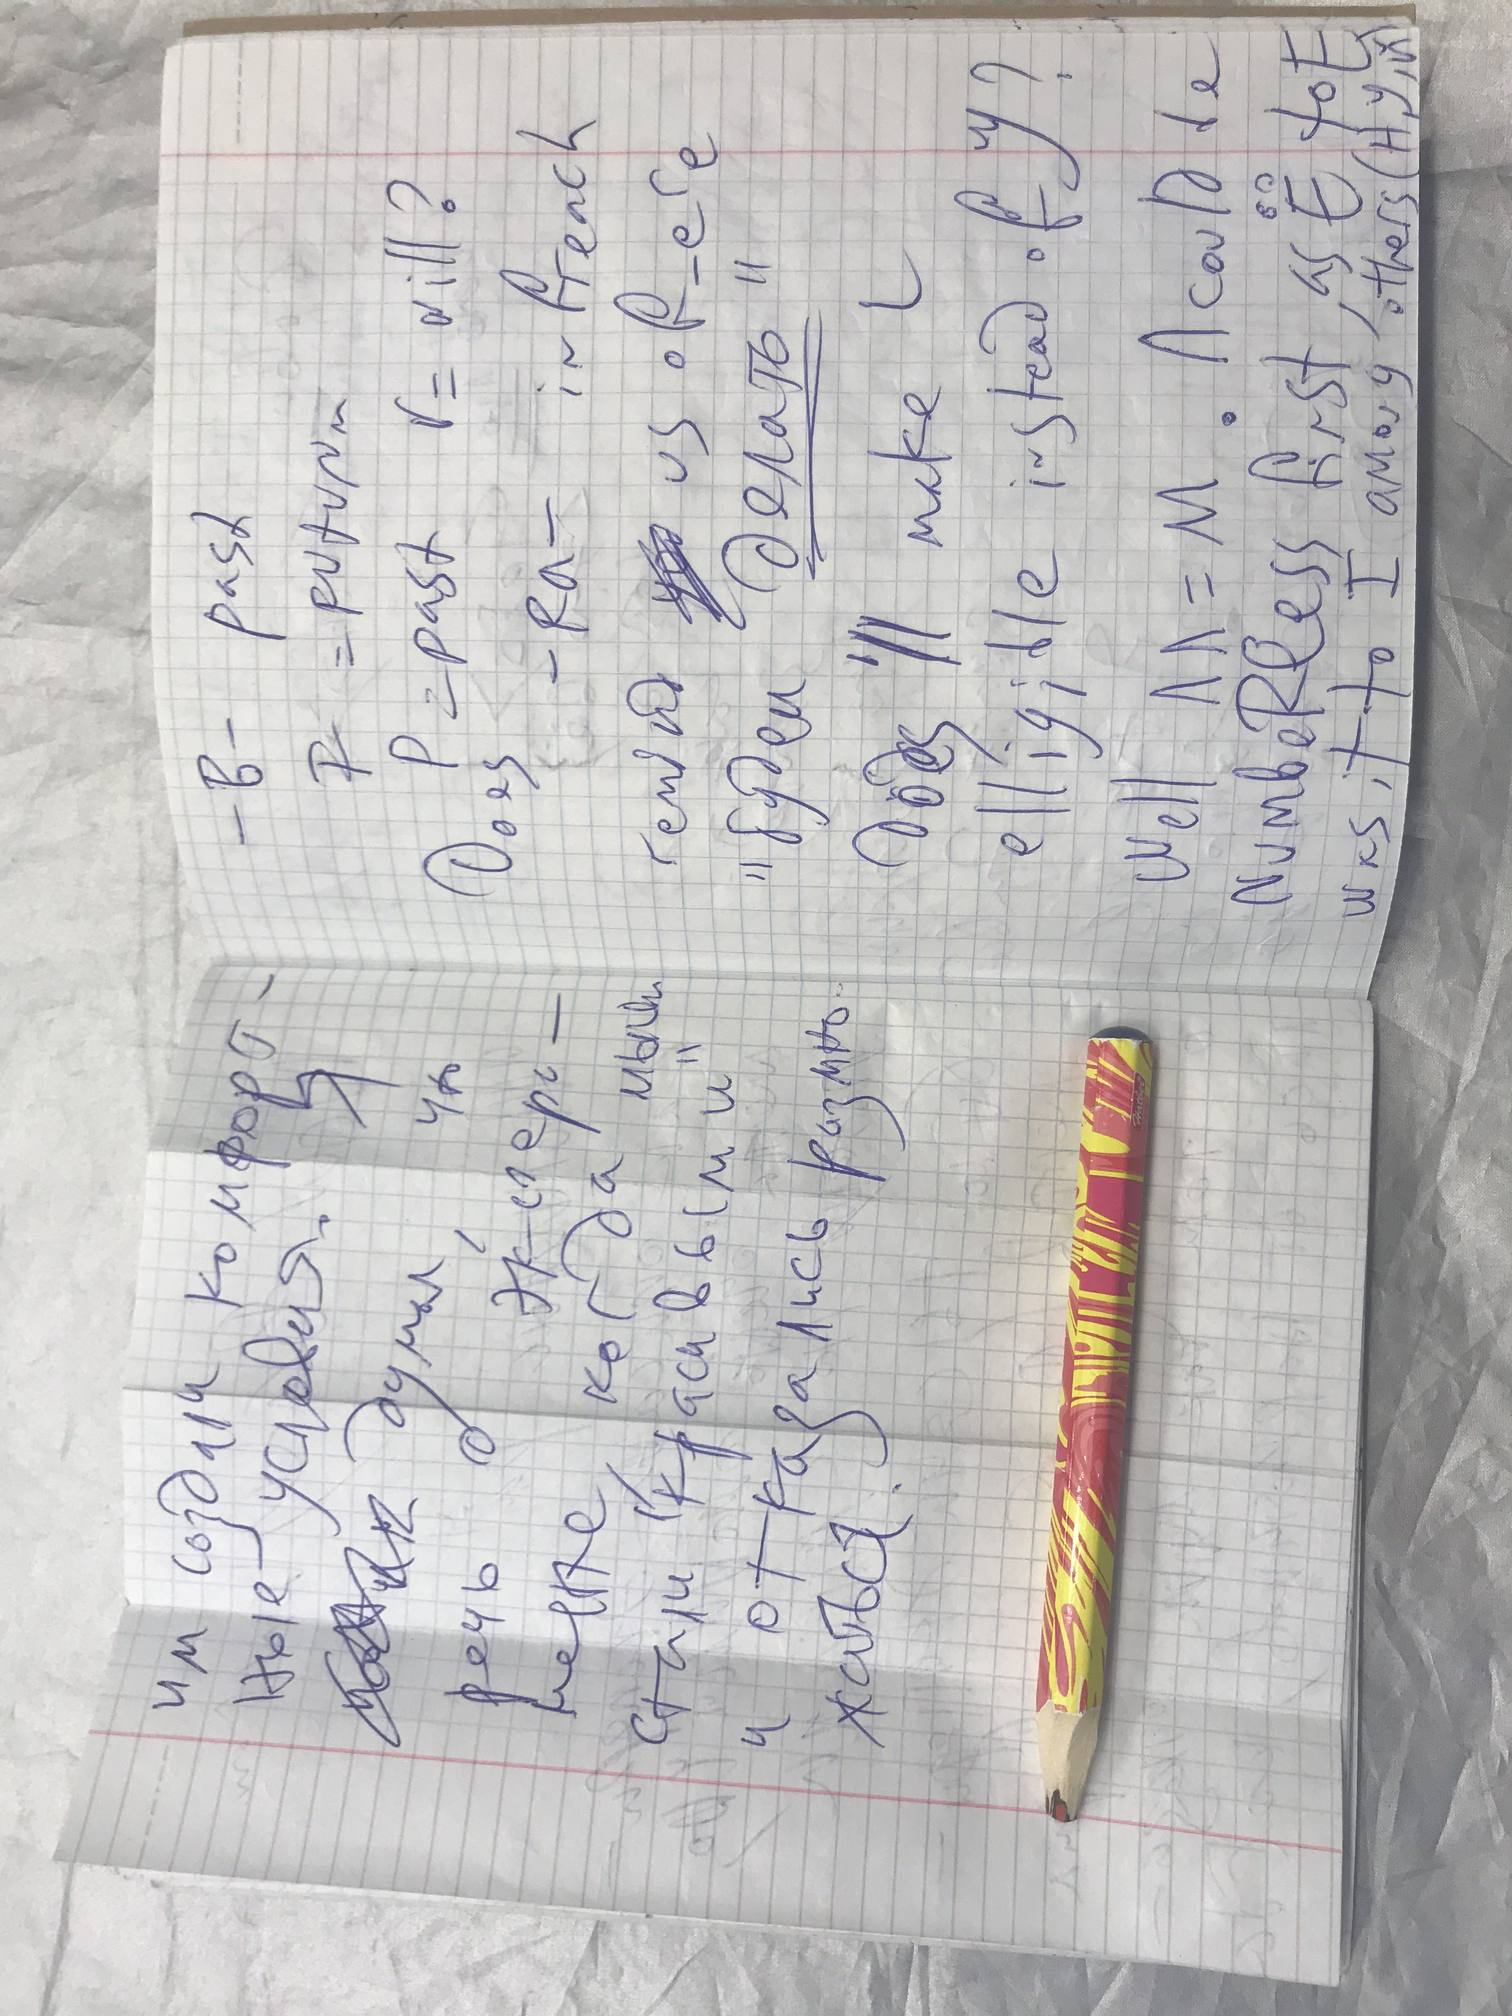 им создали комфорт-
ные условия.
Я думал что
речь о экспери-
менте когда мыши
стали "красивыми"
и отказались размно-
жаться.
-B- past
P = puturum
P = past v = will?
Does -Ra- in french
remind us of -ere
"будем делать"
Does make L
elligible instead of
Well ΛΛ = M. Λ could be
NumbeRless first, as E to Ё
was, + to I among others (Ы,